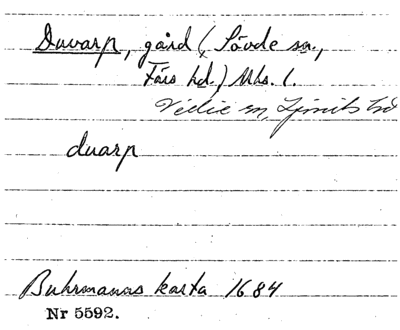 Duvarp, gård (Sövde sn.,
Färs hd.) Mhs. l.
Vedie sn, Ljunits hd
duarp
Buhrmanns karta 1684
Nr 5592.